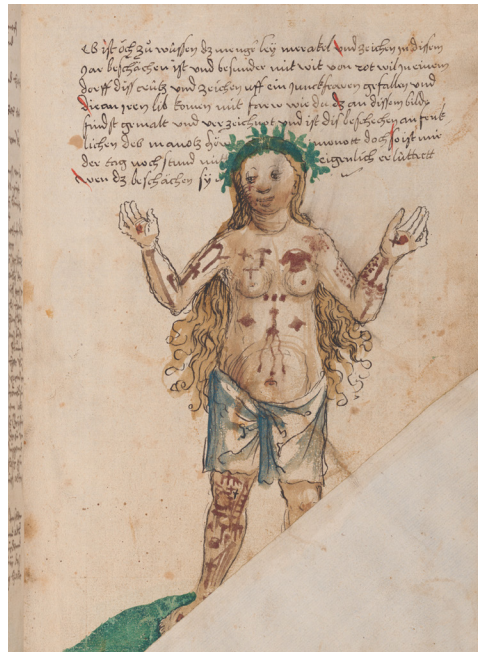 Es ist öch zü wüssen dz menge ley merakel und zeichen in dissem
Jar beschächen ist und besunder nit wit von rot wil in einem
dorff diss crütz und zeichen uff ein junckfrowen gefallen und
die an iren lib komen mit farw wie du dz an dissem bilde
findst gemalt und verzeichnot und ist dis beschechen an
lichen des manotz monott doch so ist mir
der tag noch stund nüt eigenlich erlüttrett
wen dz beschächen sy